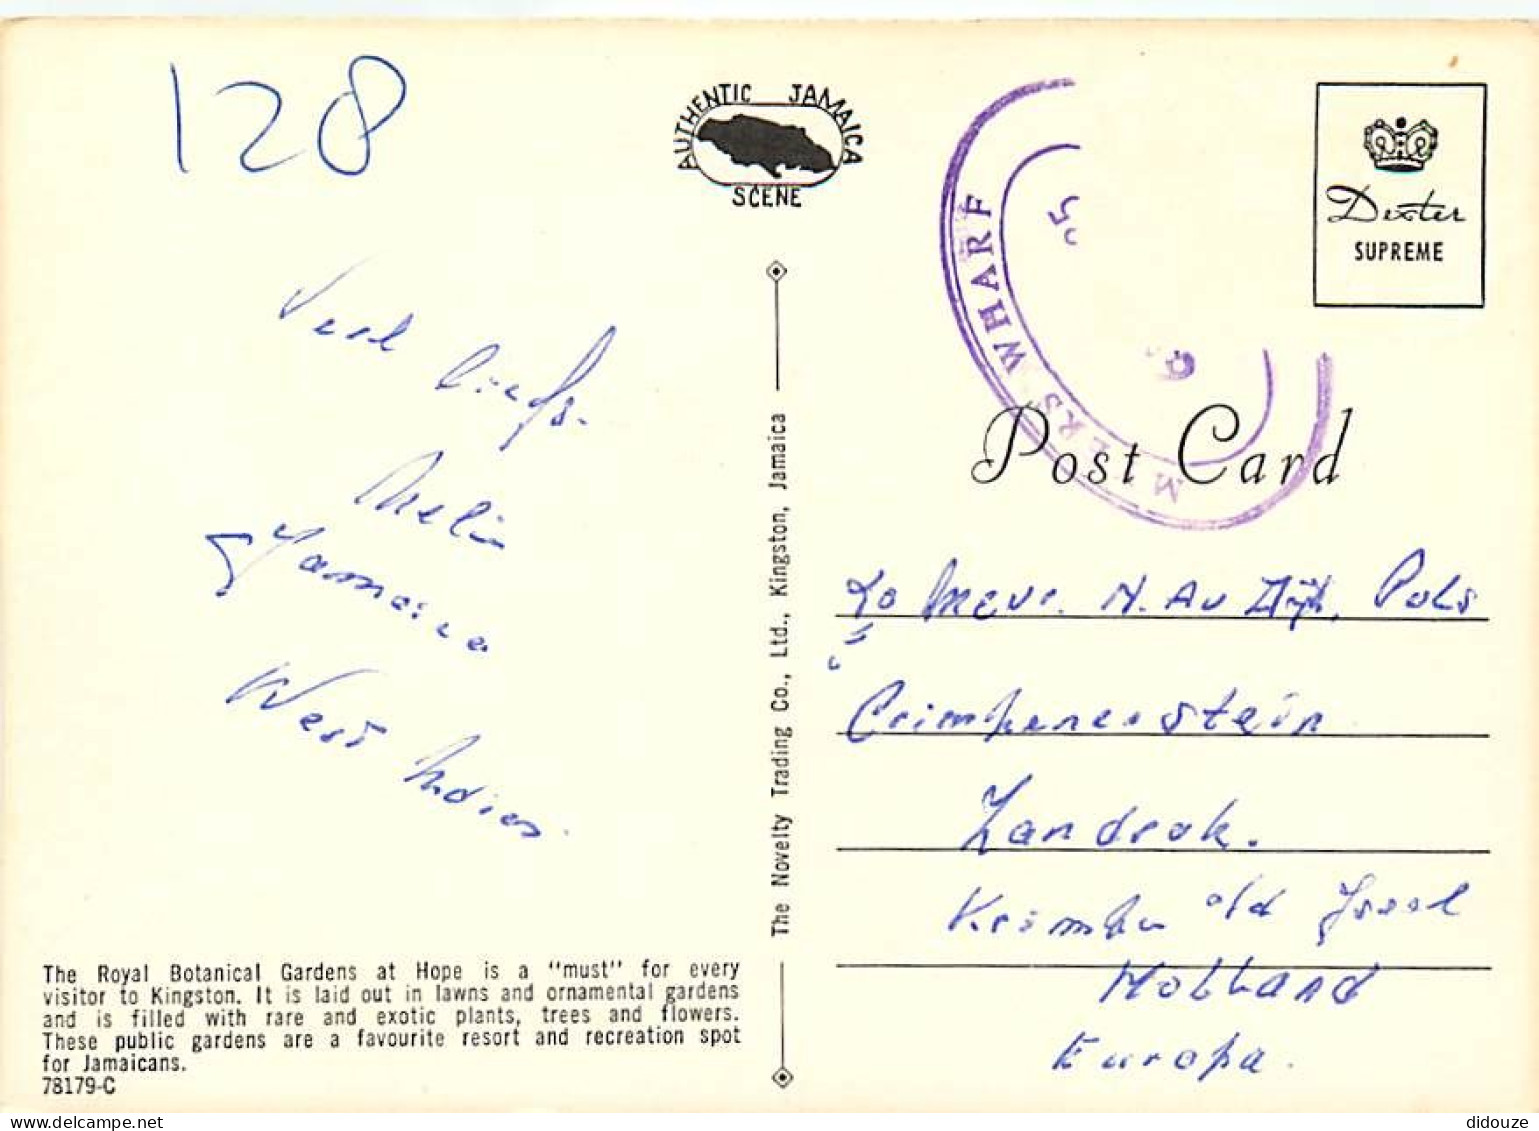 128
AUTHENTIC JAMAICA
SCENE
Veel liefs.
West Indies
The Royal Botanical Gardens at Hope is a "must" for every
visitor to Kingston. It is laid out in lawns and ornamental gardens
and is filled with rare and exotic plants, trees and flowers.
These public gardens are a favourite resort and recreation spot
for Jamaicans.
78179-C
The Novelty Trading Co., Ltd., Kingston, Jamaica
WHARF
Dexter
SUPREME
Post Card
Mevr.
Crimpenerstein
Zandrak.
Krimpen a/d Yssel
Holland
Europa.
didouze